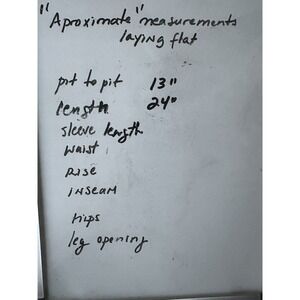 "Aproximate" measurements
laying flat
pit to pit 13"
length 24"
sleeve length
waist
RISE
INSEAM
Hips
leg opening